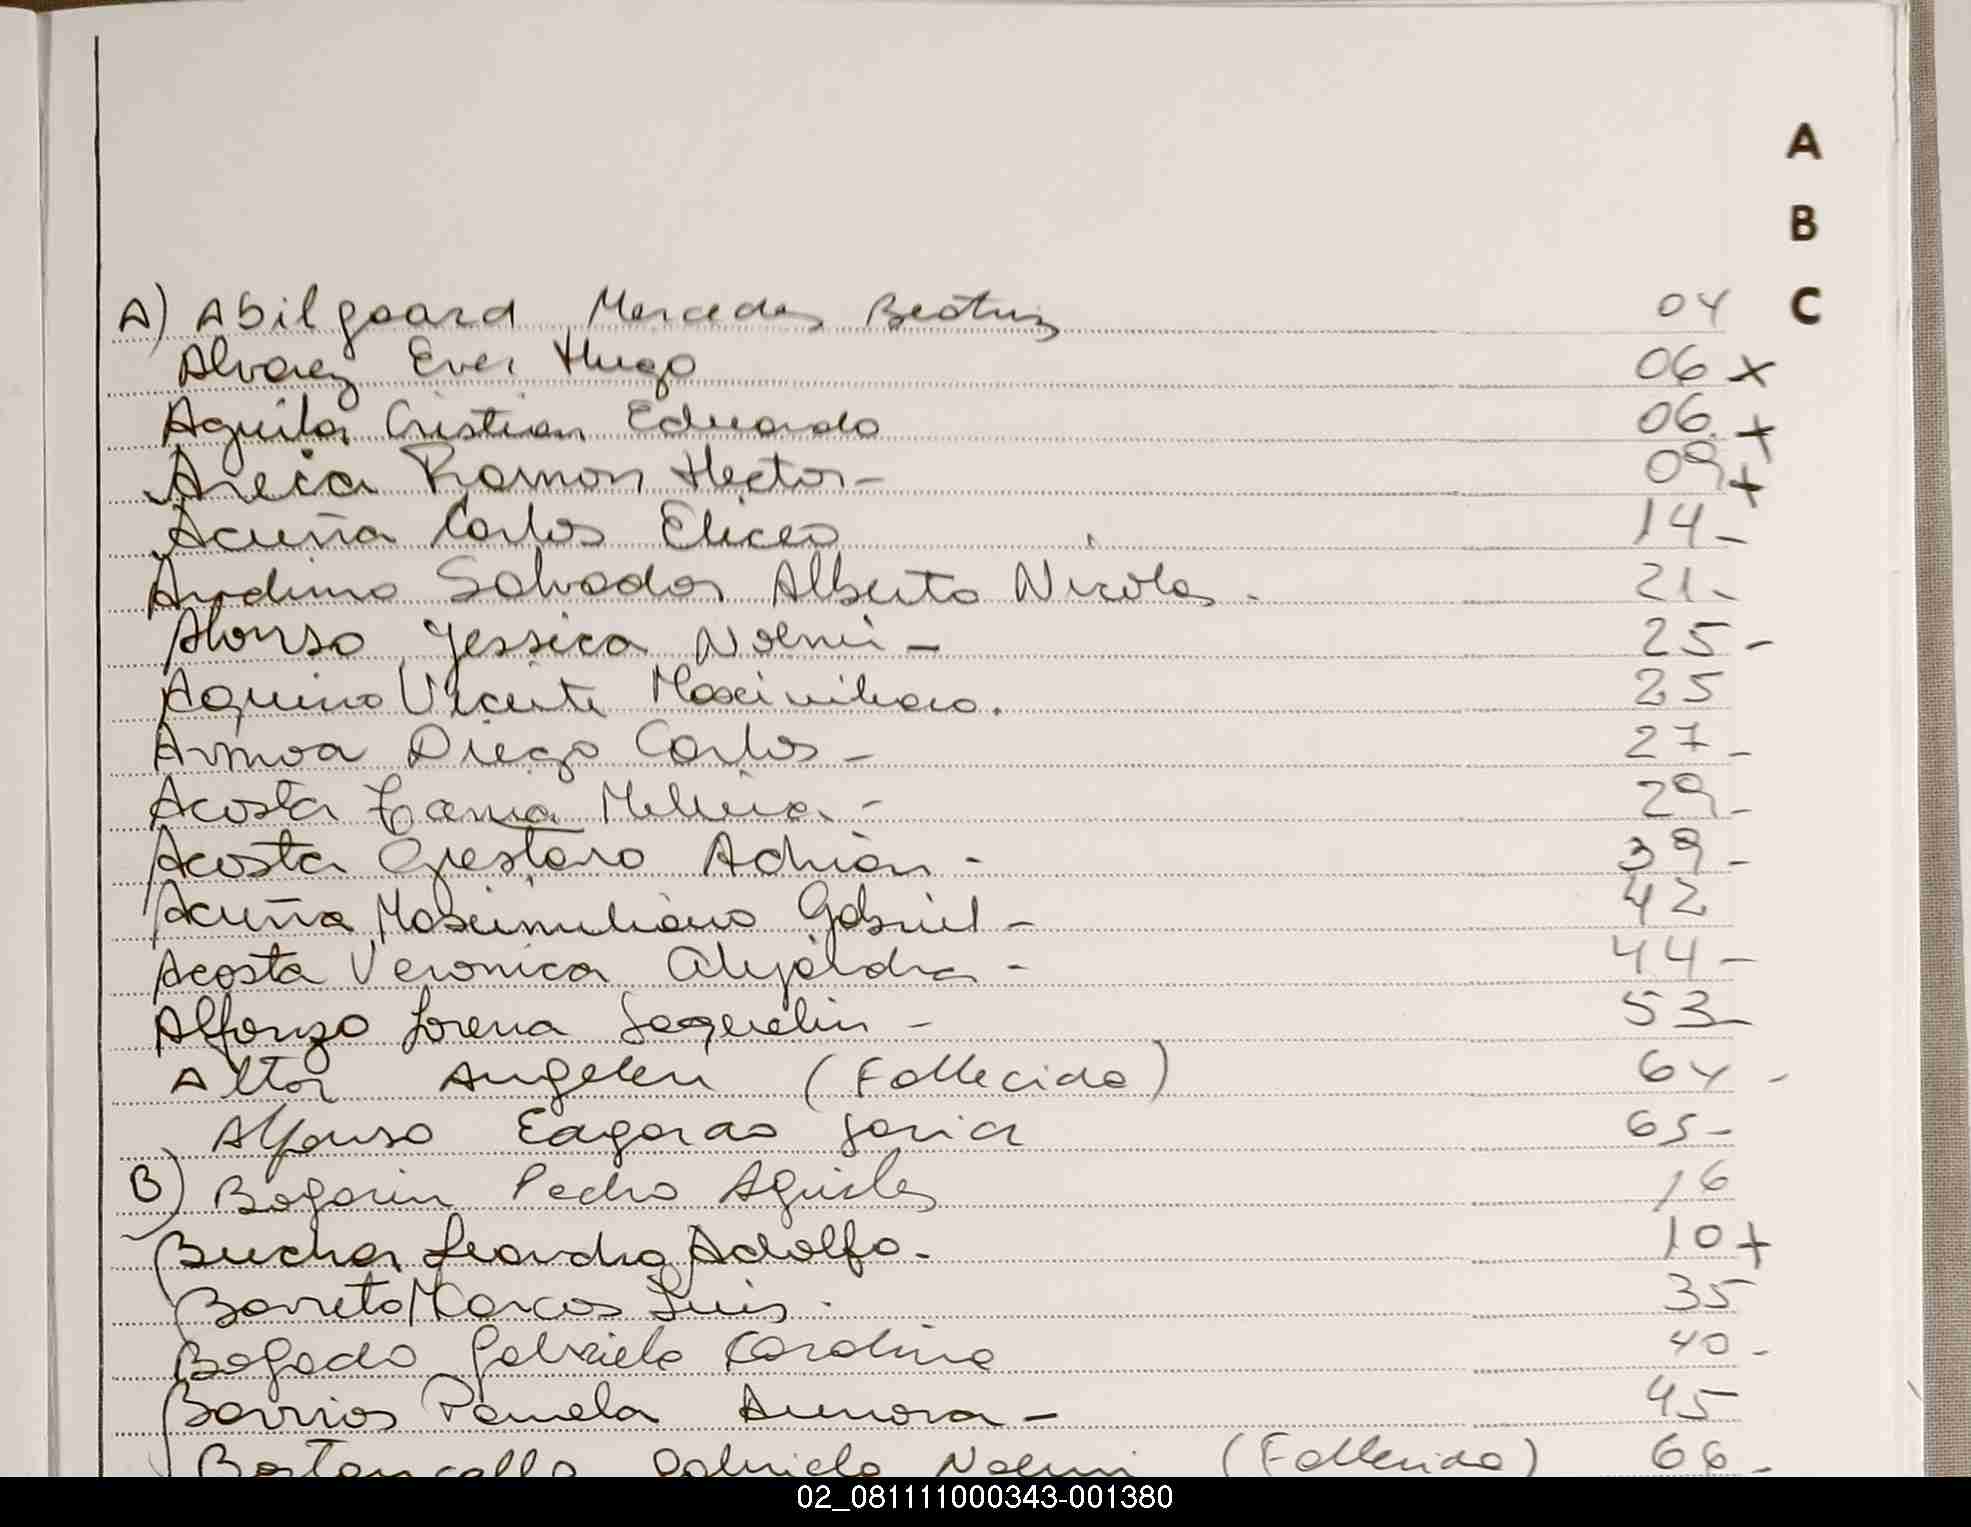 A
B
C
A) Abilgaard Mercedes Beatriz 04
Alvarez Ever Hugo 06 x
Aguilar Cristian Eduardo 06. +
Areca Ramon Hector - 09 +
Acuña Carlos Eliceo 14 -
Salvador Alberto Nicolas . 21 -
Alonso Yessica Noemi - 25 -
Aquino Vicente Maximiliano. 25
Armoa Diego Carlos - 27 -
Acosta Melina - 29 -
Acosta Gustavo Adrian - 39 -
Acuña Maximiliano Gabriel - 42
Acosta Veronica Alejandra - 44 -
Alfonzo Lorena Jaquelin - 53 -
Altor Angeleri (Fallecida) 64 -
Alfonso Edgardo Javier 65 -
B) Bogarin Pedro Aguiles 16
Leandro Adolfo - 10 +
Barreto Marcos Luis . 35
Bogado Gabriela Carolina 40 -
Barrios Pamela Aurora - 45
Gabriela Noemi (Fallecida) 66 -
02_081111000343-001380